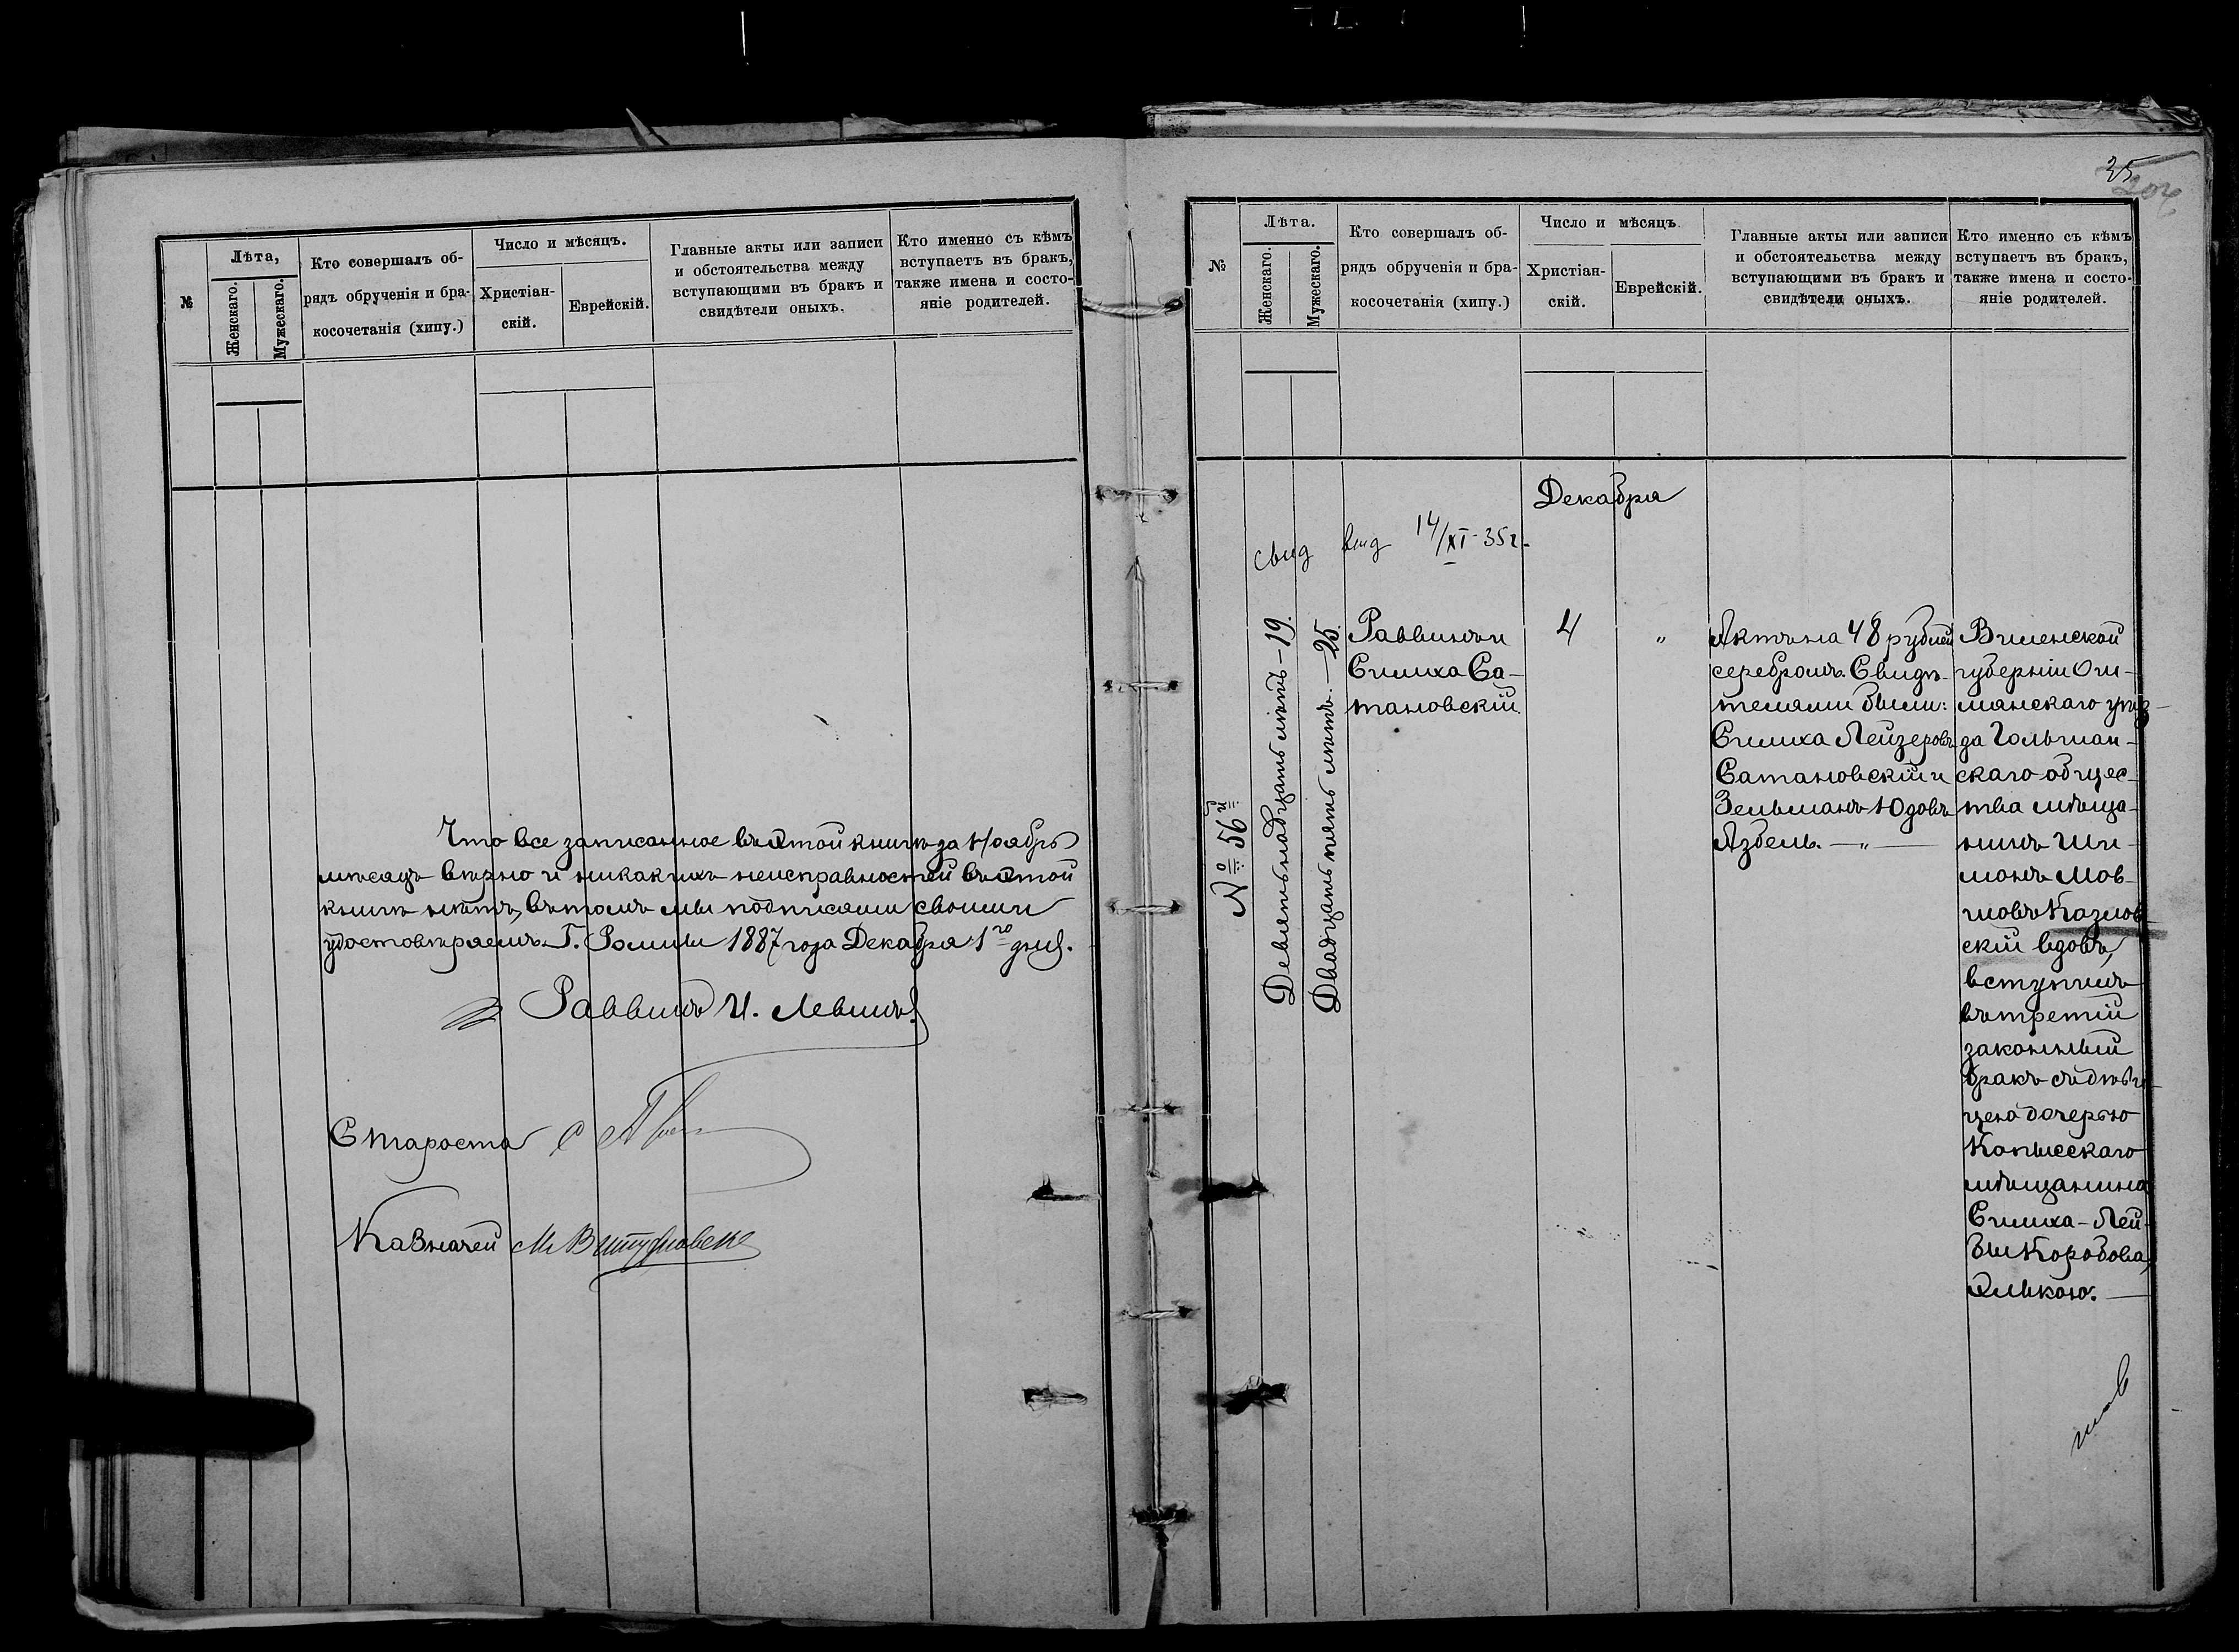 №
Лѣта,
Женскаго.
Мужескаго.
Кто совершалъ об-
рядъ обрученія и бра-
косочетанія (хипу.)
Число и мѣсяцъ.
Христіан-
скій.
Еврейскій.
Главные акты или записи
и обстоятельства между
вступающими въ бракъ и
свидѣтели оныхъ.
Кто именно съ кѣмъ
вступаетъ въ бракъ,
также имена и состо-
яніе родителей.
Что все записанное въ этой книгѣ за Ноябрь
мѣсяцъ вѣрно и никакихъ неисправностей въ этой
книгѣ нѣтъ, въ томъ мы подписями своими
удостовѣряемъ. Г. Ромны 1887 года Декабря 1го дня.
Раввинъ И. Левинъ
Староста
Казначей М
35
№
Лѣта.
Женскаго.
Мужескаго.
Кто совершалъ об-
рядъ обрученія и бра-
косочетанія (хипу.)
Число и мѣсяцъ
Христіан-
скій.
Еврейскій.
Главные акты или записи
и обстоятельства между
вступающими въ бракъ и
свидѣтели оныхъ.
Кто именно съ кѣмъ
вступаетъ въ бракъ,
также имена и состо-
яніе родителей.
Декабря
свид выд 14/XI-35г.
№ 56й
Девятьнадцать лѣтъ - 19.
Двадцать пять лѣтъ. - 25.
Раввинъ и
Симха Са-
тановскій.
4
"
Актъ на 48 рублей
серебромъ. Свидѣ-
телями были:
Симха Лейзеровъ
Сатановскій и
Зельманъ Юдовъ
Азбель. — " —
Виленской
губерніи Ош-
мянскаго уѣз-
да Гольшан-
скаго общес-
тва мѣща-
нинъ Ши-
монъ Мов-
шовъ Казлов-
скій вдовъ,
вступилъ
въ третій
законный
бракъ съ дѣви-
цею дочерью
Копысскаго
мѣщанина
Симха-Лей-
бы Коробова,
Элькою. —